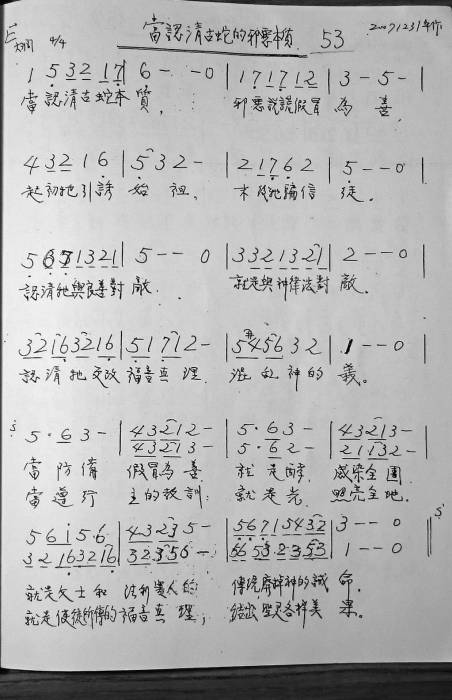 E 大調 4/4 當認清古蛇的邪惡本質 53 20071231作
1 5 32 17 | 6 - - 0 | 17 17 12 | 3 - 5 - |
當認清古蛇本質, 邪惡說謊假冒為善,
4 32 1 6 | 5 3 2 - | 2 17 6 2 | 5 - - 0 |
起初牠引誘始祖, 末後牠騙信徒。
5 671321 | 5 - - 0 | 3321321 | 2 - - 0 |
認清牠與良善對敵, 就是與神律法對敵。
32163216 | 51712 - | 5456 32 | 1 - - 0 |
認清牠更改福音真理, 混乱神的義。
5·6 3 - | 43212 - | 5·63 - | 43213 - |
43213 - | 5·62 - | 21132 - |
當防備假冒為善 就是酵, 感染全團
當遵行主的教訓: 就是光, 照亮全地.
5 6 i 5·6 | 43235 - | 56715432 | 3 - - 0
32163216 | 32356 - | 1 - - 0
就是文士和法利賽人的傳統廢掉神的誡命.
就是使徒所傳的福音真理; 結出聖灵各样美果。